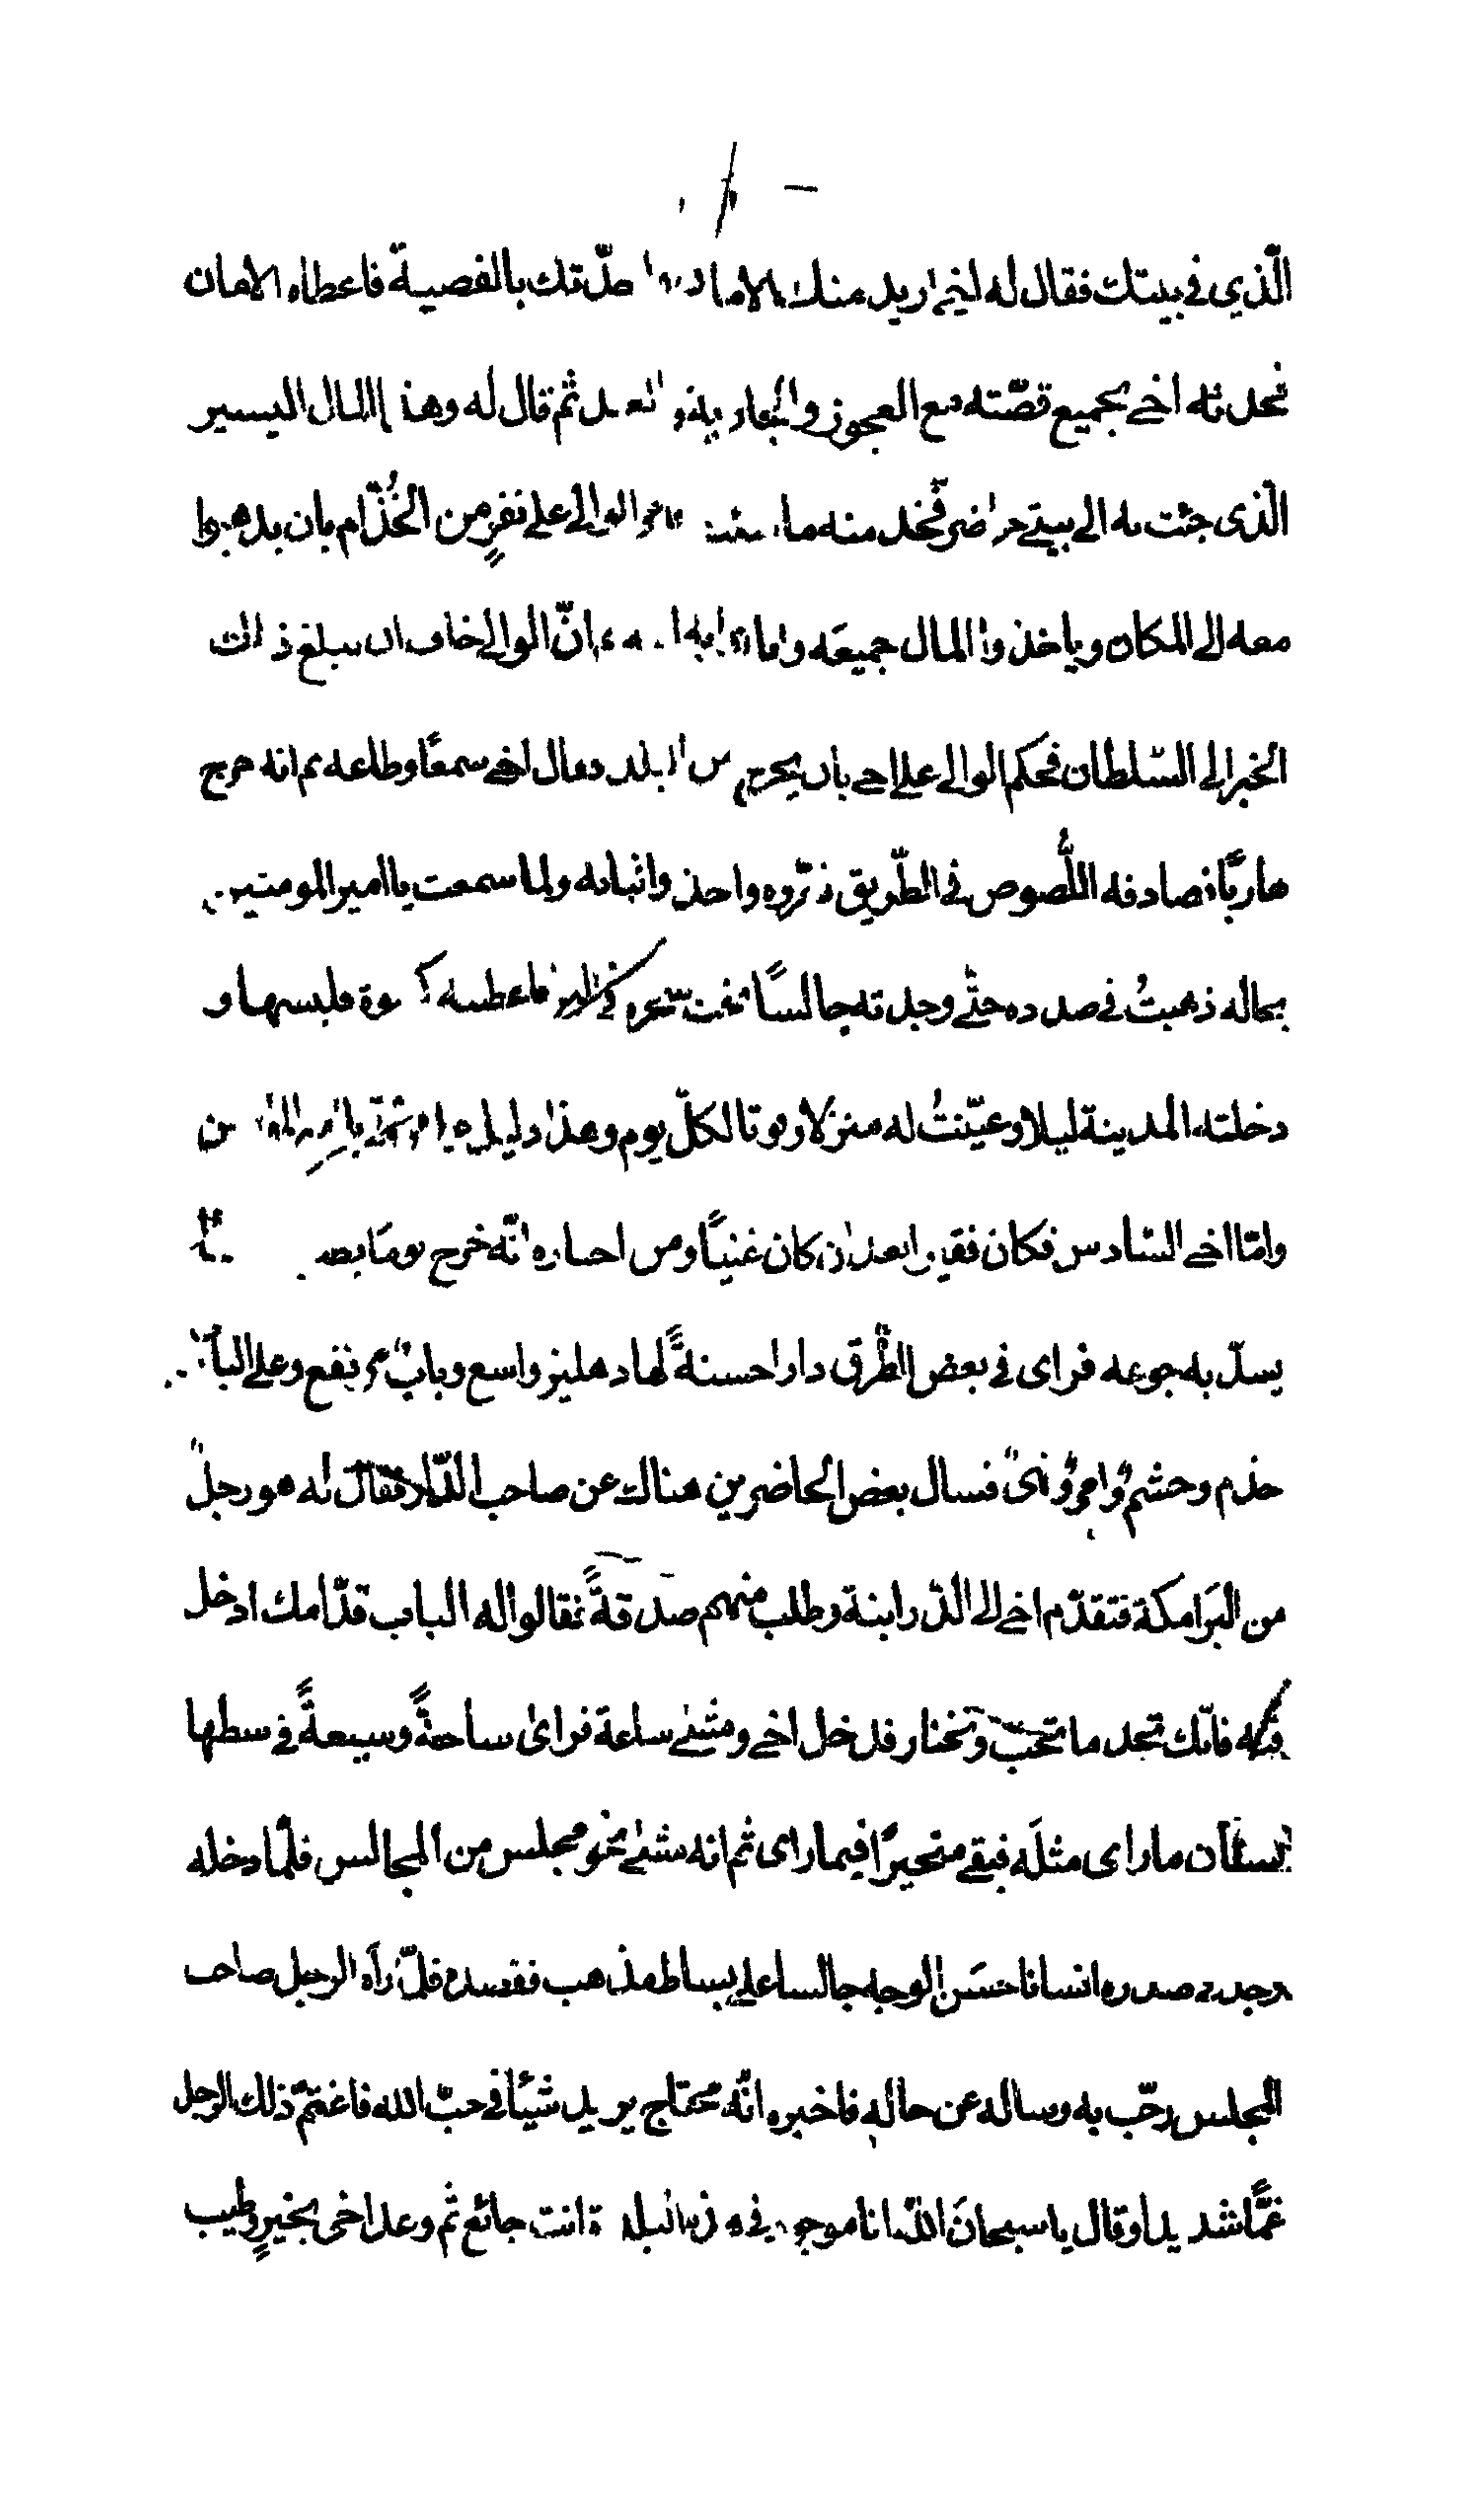 الّذي في بيتك فقال له اخي اريد منك الامان صدّقتك بالقصية فاعطاه الامان
فحدثه اخي بجميع قصّته مع العجوز والجارية والعبد ثم قال له وهذا المال اليسير
الّذى جئت به الى بيتي حاضر فخذ منه ما الوالي على نفرٍ من الخُدّام بان يذهبوا
معه الى المكان وياخذوا المال جميعَه واما انّ الوالي خاف ان يبلغ ذلك
الخبر الى السّلطان فحكم الوالي على اخي بان يخرج من البلد فقال اخي سمعًا وطاعه ثم انه خرج
هاربًا فصادفه اللّصوص في الطّريق واخذوا ثيابه ولما سمعت ياامير المومنين
بحاله ذهبتُ في صدده حتّى وجدته جالسًا تحت فاعطيته فلبسها و
دخلته المدينة ليلا وعيّنتُ له منزلا وقوتا لكلّ يوم وهذا
وامّا اخي السّادس فكان فقيرا بعد ان كان غنيًّا ومن اخباره انّه خرج يومًا
يسدّ به جوعه فراى في بعض الطّرق دارا حسنةً لها دهليز واسع وبابٌ مرتفع وعلى الباب
خدم وحشم وامرٌ ونهىٌ فسال بعض الحاضرين هناك عن صاحب الدّار فقال له هو رجلٌ
من البَرامكة فتقدّم اخي الى الدّرابنة وطلب منهم صدقةً فقالوا له الباب قدّامك ادخل
فانّك تجد ما تحبّ وتختار فدخل اخي ومشى ساعة فراىٰ ساحةً وسيعةً في سطها
بستان ماراى مثلَه فبقي متحيرًا فيما راى ثم انه مشىٰ نحو مجلس من المجالس فلمّا دخله
وجد في صدره انسانا حَسَن الوجه جالسا على بساط مذهب فقصده فلمّا رآه الرجل صاحب
المجلس رحّب به وساله عن حاله فاخبره انّه محتاج يريد شيئًا في حبّ الله فاغتمّ ذلك الرجل
غمًّا شديدا وقال ياسبحانَ اللّه انا موجود في هذه البلدة انت جائع ثم وعد اخى بخيرٍ وطيب